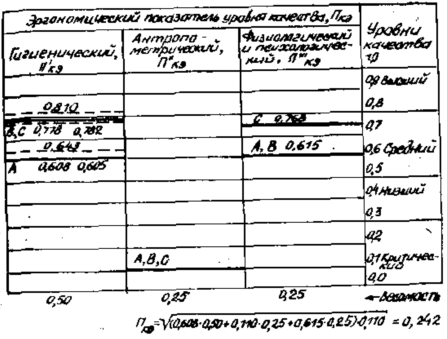 Эргономический показатель уровня качества, Пкэ
Уровни качества
1,0
Гигиенический, П'кэ
Антропо-метрический, П"кэ
Физиологический и психологичес-кий, П'''кэ
0,9 Высший
0,810
0,8
С 0,768
В,С 0,778 0,782
0,7
0,643
А,В 0,615
0,6 Средний
А 0,608 0,605
0,5
0,4 Низший
0,3
0,2
А,В,С
0,1 Критичес-кий
0,0
0,50 0,25 0,25 ←Весомость
Пкэ=√(0,608·0,50+0,110·0,25+0,615·0,25)·0,110 = 0,242